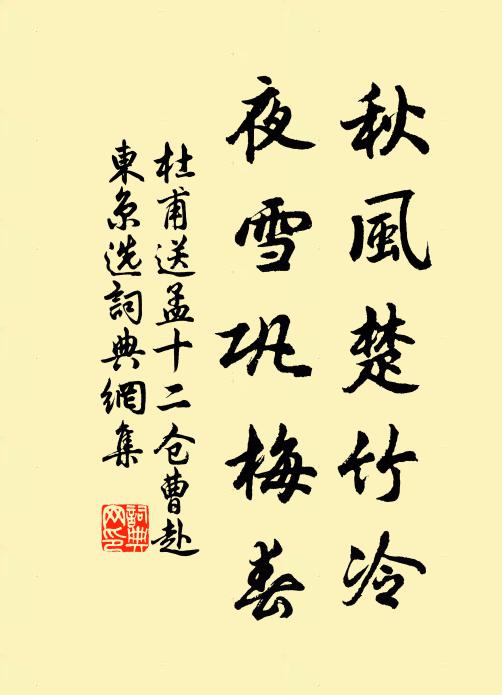 秋風楚竹冷
夜雪巩梅春
杜甫送孟十二仓曹赴
東京选詞典網集
詞典网印